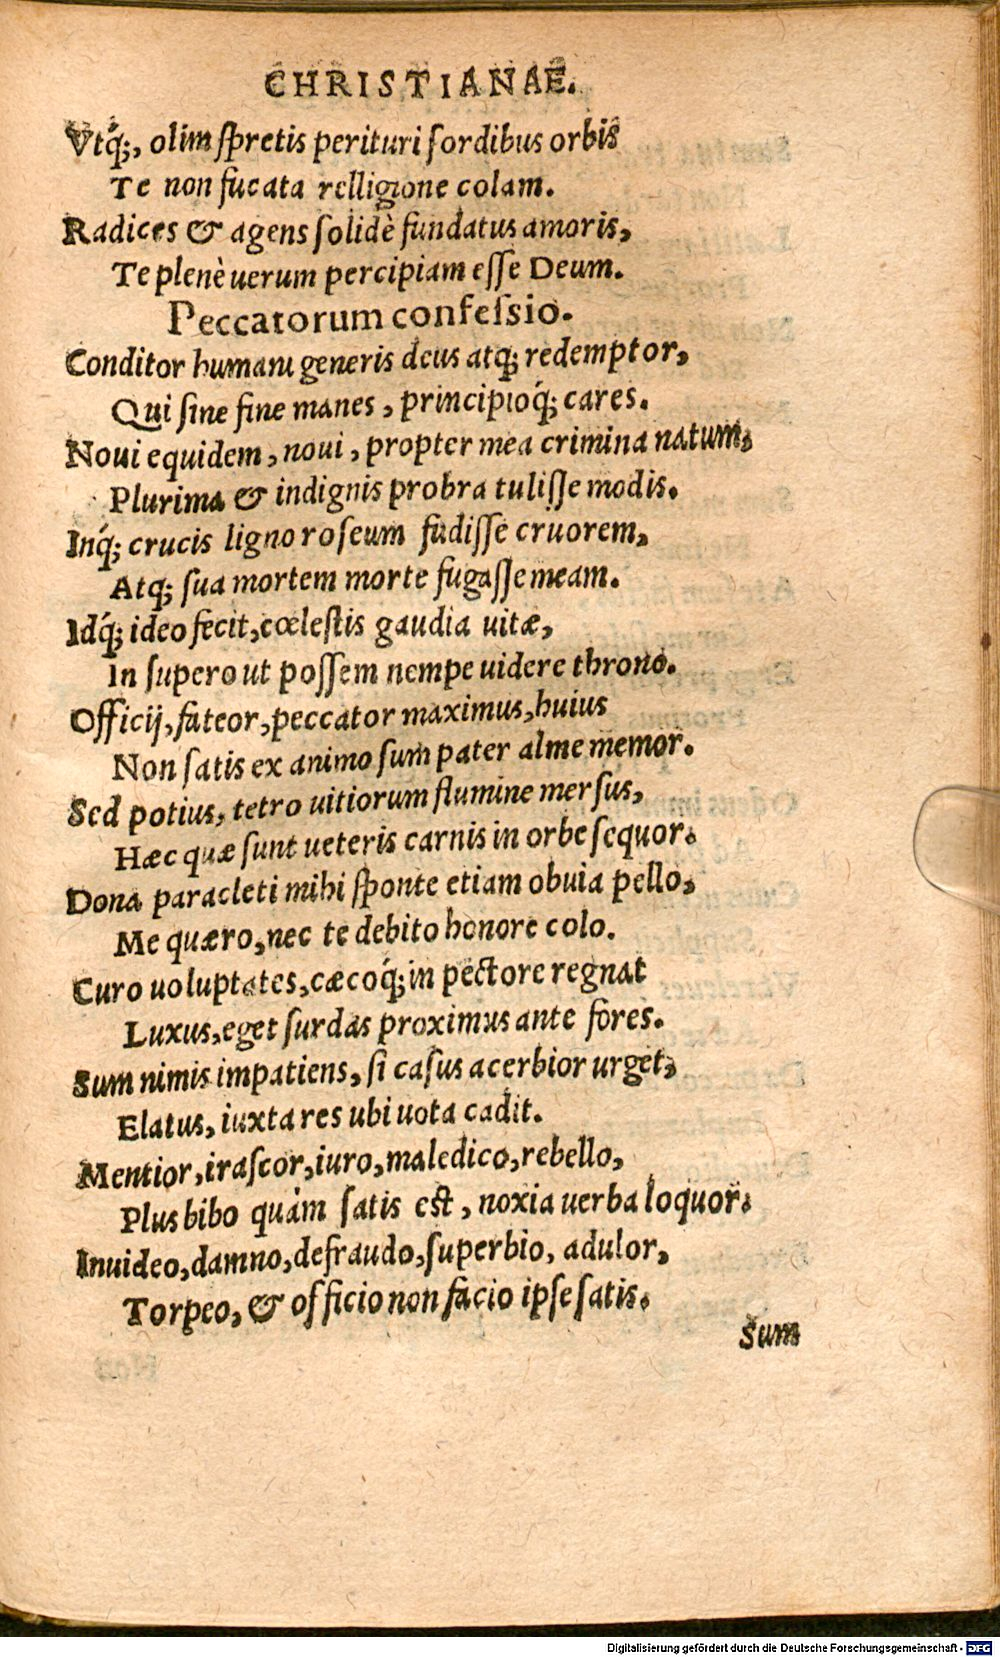 CHRISTIANAE.
Vtq́;, olim ſpretis perituri ſordibus orbis
Te non fucata relligione colam.
Radices & agens ſolidè fundatus amoris,
Te plenè uerum percipiam eſſe Deum.
Peccatorum confeſsio.
Conditor humani generis deus atq; redemptor,
Qui ſine fine manes, principioq́; cares.
Noui equidem, noui, propter mea crimina natum,
Plurima & indignis probra tuliſſe modis.
Inq́; crucis ligno roſeum fudiſſe cruorem,
Atq; ſua mortem morte fugaſſe meam.
Idq́; ideo fecit, cœleſtis gaudia uitæ,
In ſupero ut poſſem nempe uidere throno.
Officij, fateor, peccator maximus, huius
Non ſatis ex animo ſum pater alme memor.
Sed potius, tetro uitiorum flumine merſus,
Hæc quæ ſunt ueteris carnis in orbe ſequor.
Dona paracleti mihi ſponte etiam obuia pello,
Me quæro, nec te debito honore colo.
Curo uoluptates, cæcoq́; in pectore regnat
Luxus, eget ſurdas proximus ante fores.
Sum nimis impatiens, ſi caſus acerbior urget,
Elatus, iuxta res ubi uota cadit.
Mentior, iraſcor, iuro, maledico, rebello,
Plus bibo quàm ſatis eſt, noxia uerba loquor.
Inuideo, damno, defraudo, ſuperbio, adulor,
Torpeo, & officio non facio ipſe ſatis.
Sum
Digitalisierung gefördert durch die Deutsche Forschungsgemeinschaft - DFG